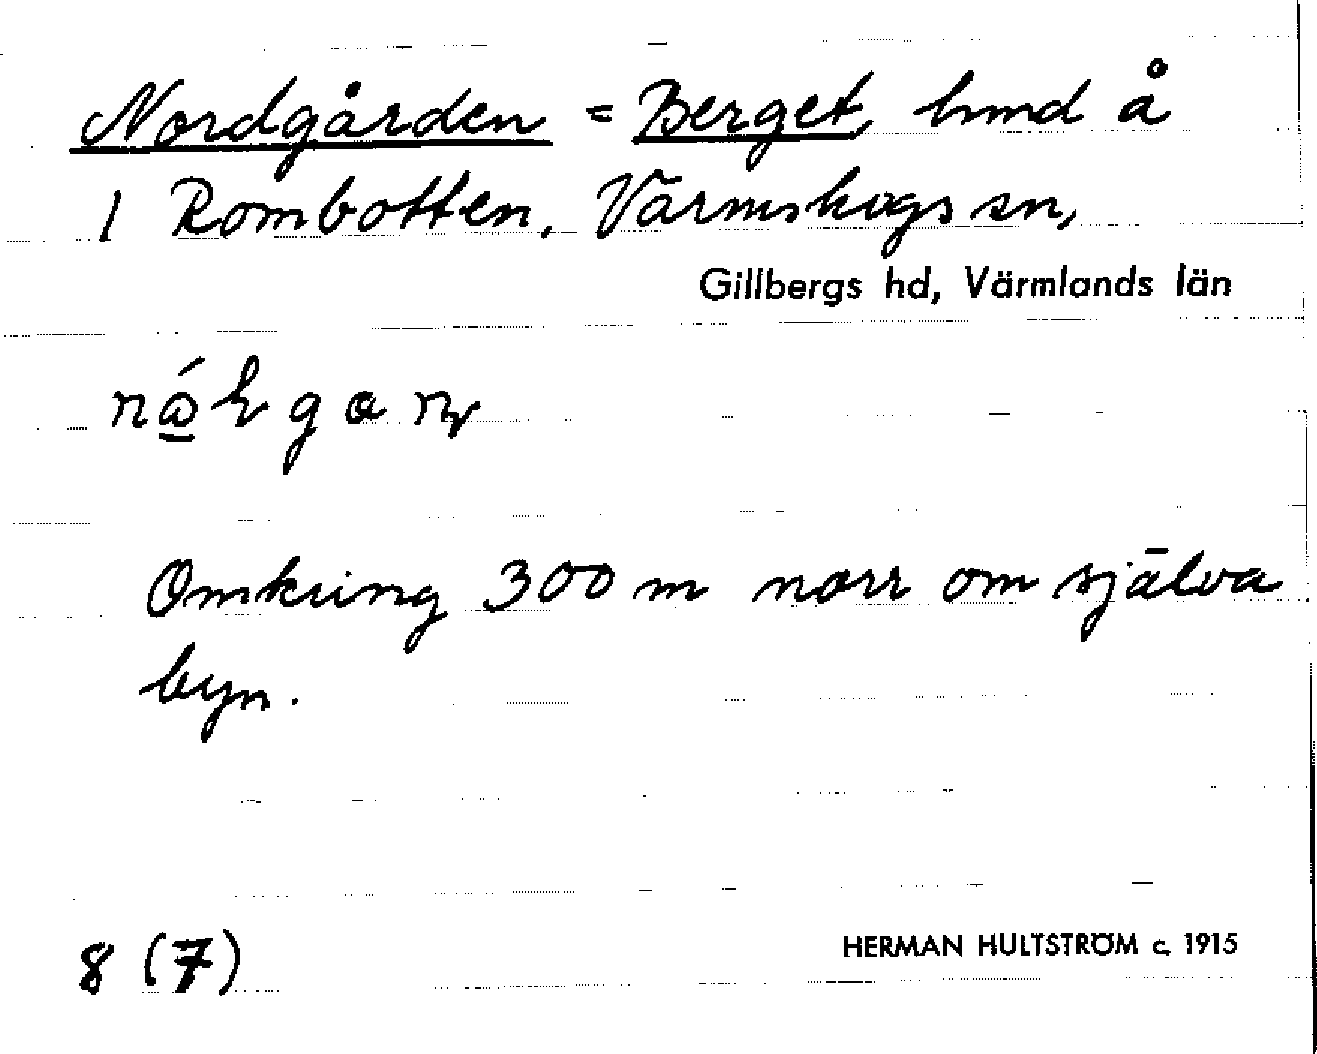 Nordgården = Berget, hmd å
1 Rombotten, Värmskogs sn,
Gillbergs hd, Värmlands län
Omkring 300 m norr om själva
byn.
8 (7)
HERMAN HULTSTRÖM c. 1915